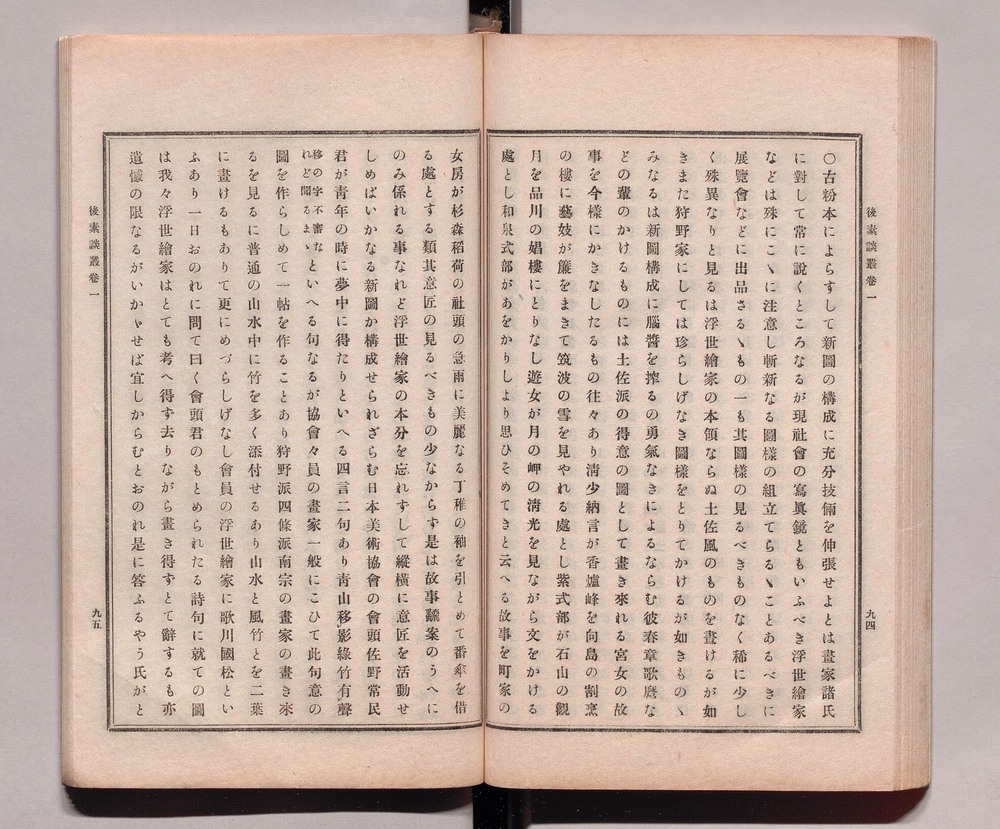 後素談叢卷一
九四
〇古粉本によらすして新圖の構成に充分技倆を伸張せよとは畫家諸氏
に對して常に說くところなるが現社會の寫眞鏡ともいふべき浮世繪家
などは殊にこゝに注意し斬新なる圖樣の組立てらるゝことあるべきに
展覽會などに出品さるゝもの一も其圖樣の見るべきものなく稀に少し
く殊異なりと見るは浮世繪家の本領ならぬ土佐風のものを畫けるが如
きまた狩野家にしては珍らしげなき圖樣をとりてかけるが如きものゝ
みなるは新圖構成に腦醬を搾るの勇氣なきによるならむ彼春章歌麿な
どの輩のかけるものには土佐派の得意の圖として畫き來れる宮女の故
事を今樣にかきなしたるもの往々あり淸少納言が香爐峰を向島の割烹
の樓に藝妓が簾をまきて筑波の雪を見やれる處とし紫式部が石山の觀
月を品川の娼樓にとりなし遊女が月の岬の淸光を見ながら文をかける
處とし和泉式部があをかりしより思ひそめてきと云へる故事を町家の
女房が杉森稻荷の社頭の急雨に美麗なる丁稚の袖を引とめて番傘を借
る處とする類其意匠の見るべきもの少なからす是は故事飜案のうへに
のみ係れる事なれど浮世繪家の本分を忘れずして縱橫に意匠を活動せ
しめばいかなる新圖か構成せられざらむ日本美術協會の會頭佐野常民
君が靑年の時に夢中に得たりといへる四言二句あり靑山移影綠竹有聲
移の字不審なれど聞るまゝといへる句なるが協會々員の畫家一般にこひて此句意の
圖を作らしめて一帖を作ることあり狩野派四條派南宗の畫家の畫き來
るを見るに普通の山水中に竹を多く添付せるあり山水と風竹とを二葉
に畫けるもありて更にめづらしげなし會員の浮世繪家に歌川國松とい
ふあり一日おのれに問て曰く會頭君のもとめられたる詩句に就ての圖
は我々浮世繪家はとても考へ得す去りながら畫き得ずとて辭するも亦
遺憾の限なるがいかゞせば宜しからむとおのれ是に答ふるやう氏がと
後素談叢卷一
九五